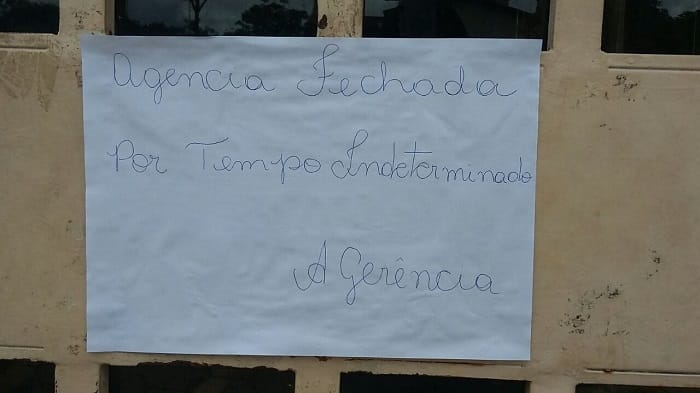 Agencia Fechada
Por Tempo Indeterminado
A Gerência